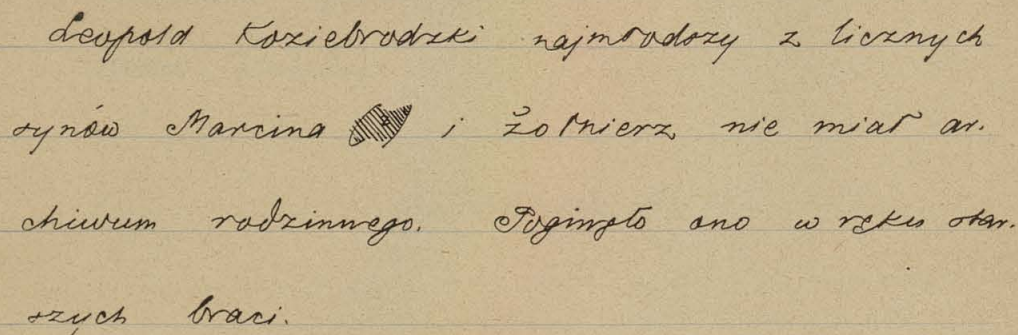 Leopold Koziebrodzki najmłodszy z licznych
synów Marcina i żołnierz nie miał ar.
chiwum rodzinnego. Poginęło ono w ręku star.
szych braci.